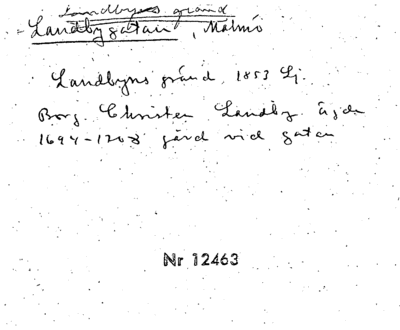 Landbyns gränd
Landbygatan, Malmö
Landbyns gränd 1853 Lj.
Borg. Christen Landby ägde
1694-1708 gård vid gatan
Nr 12463